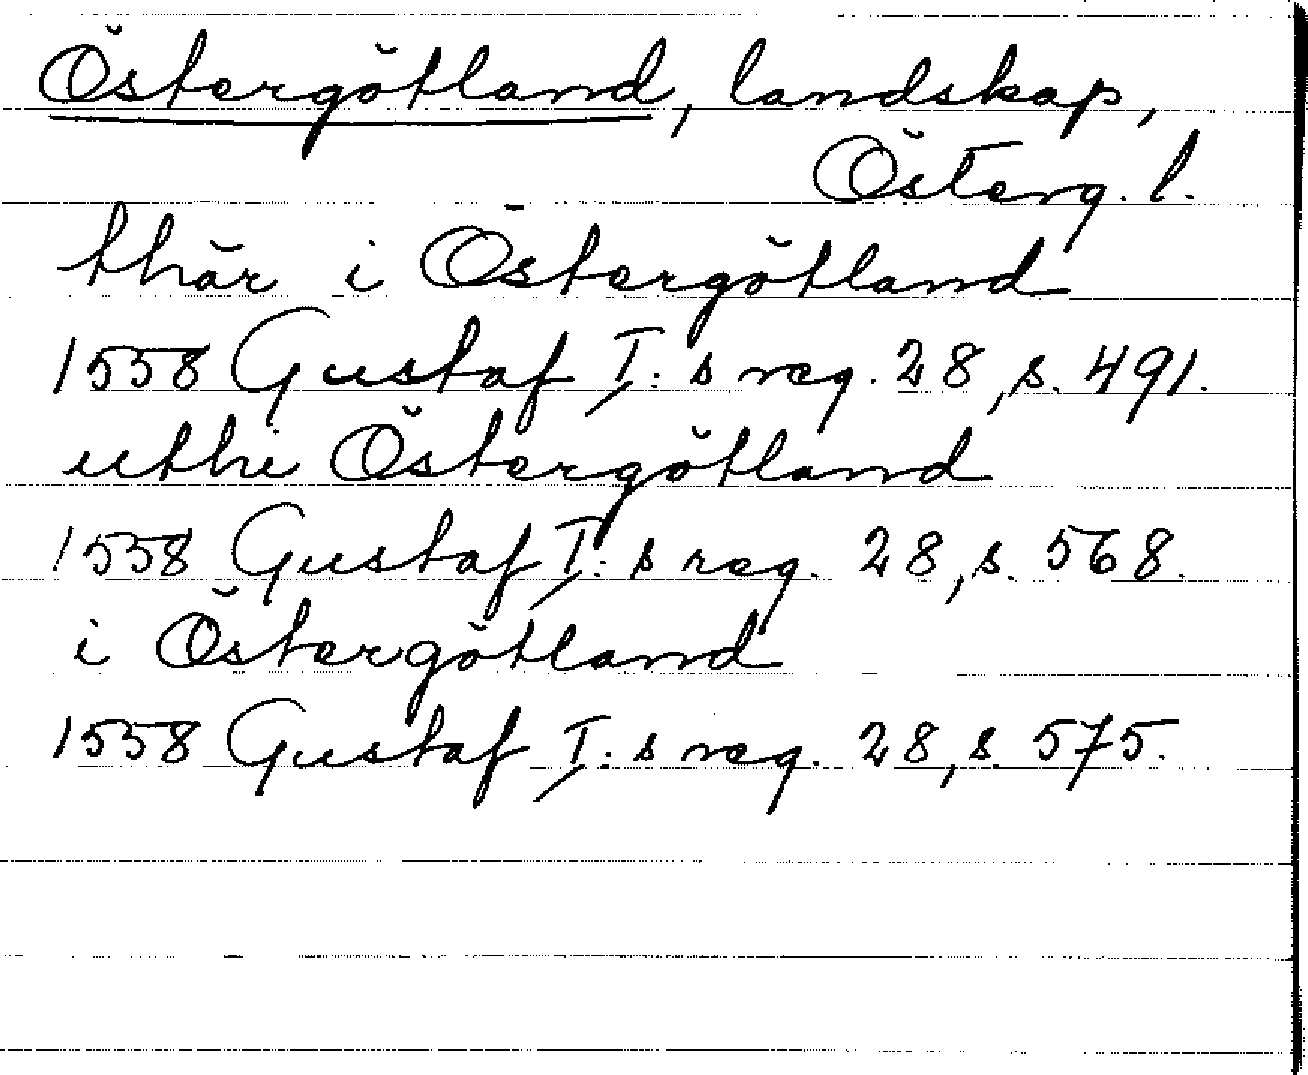 Östergötland, landskap,
Österg. l.
thär i Östergötland
1558 Gustaf I:s reg. 28, s. 491.
uthi Östergötland
1558 Gustaf I:s reg. 28, s. 568.
i Östergötland
1558 Gustaf I:s reg. 28, s. 575.